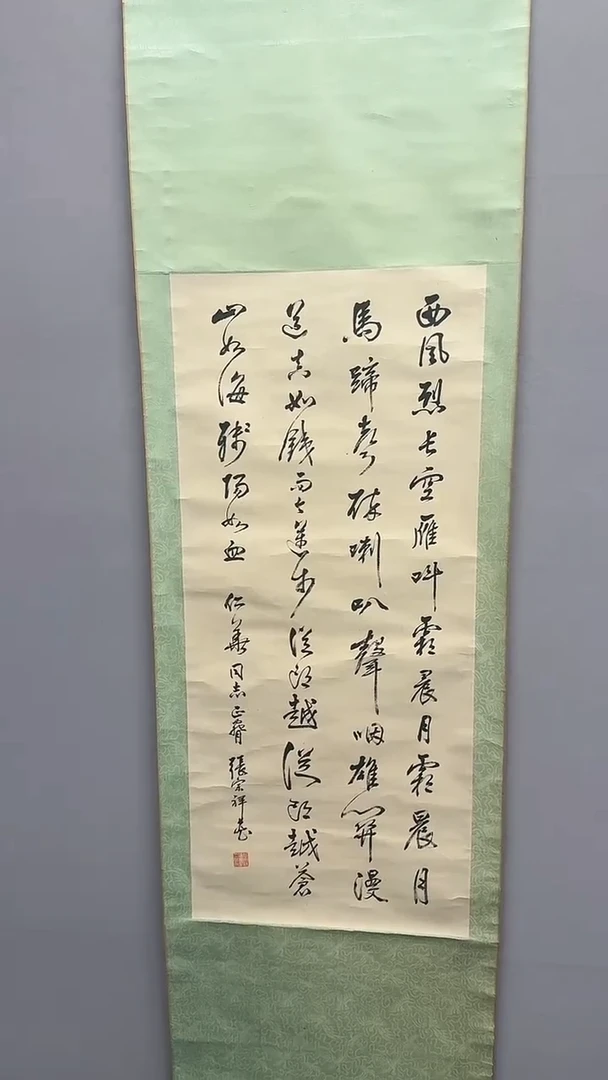 西風烈長空雁叫霜晨月霜晨月
馬蹄聲碎喇叭聲咽雄關漫
道真如鐵而今邁步從頭越從頭越蒼
山如海殘陽如血 仁華同志正臂 張宗祥書